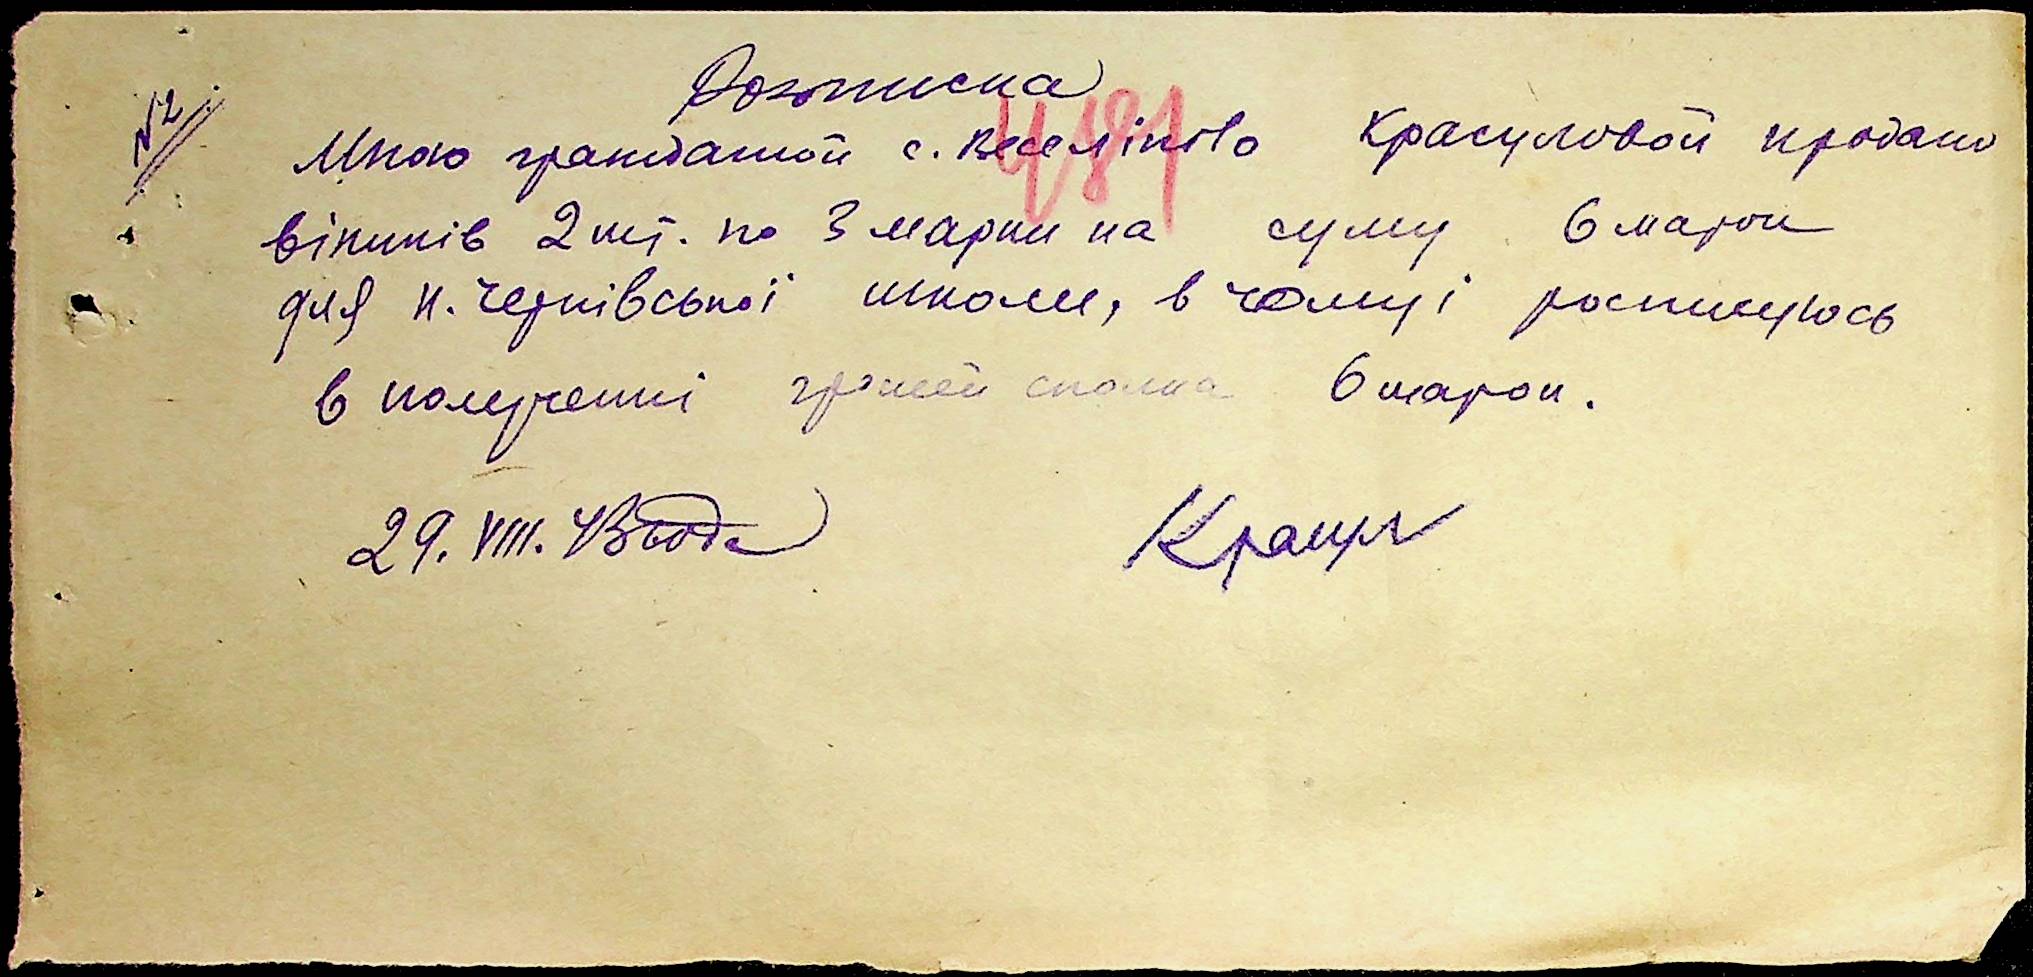 №2
Розписка
481
Мною гражданкой с. Веселіново Красуловой продано
віників 2 шт. по 3 марки на суму 6 марок
для н. Чернівської школи, в чому і росписуюсь
в получєнні грошей сполна 6 марок.
29. VIII.
Красул